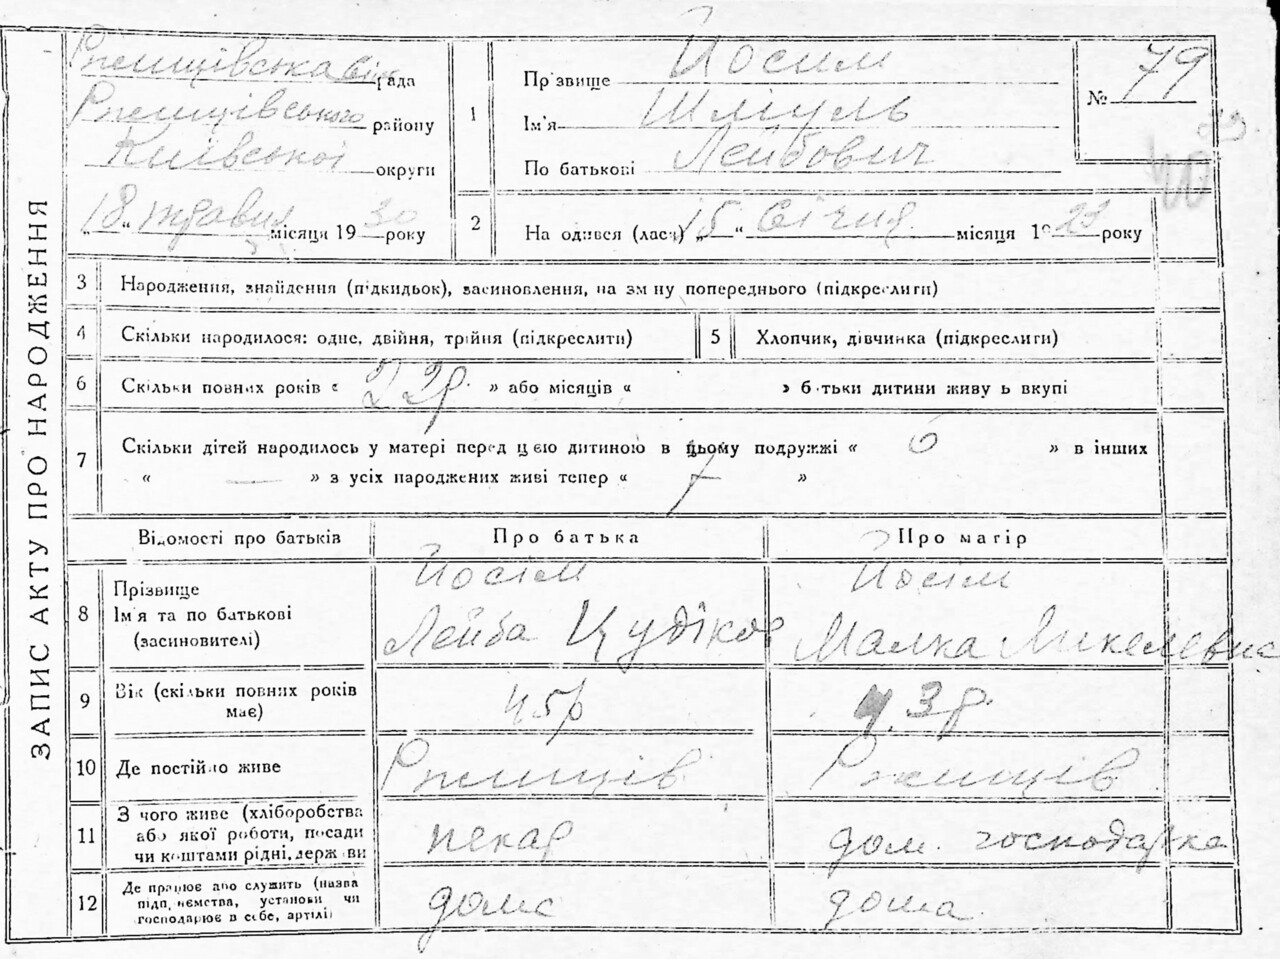 ЗАПИС АКТУ ПРО НАРОДЖЕННЯ
Ржищівська рада
Ржищівського району
Київської округи
„18“ травня місяця 1930 року
1
Прізвище Йосим
Ім'я Шміуль
По батькові Лейбович
№ 79
2
На одився (лась) „15“ Січня місяця 1923 року
3 Народження, знайдення (підкидьок), засиновлення, на зм ну попереднього (підкреслити)
4 Скільки народилося: одне, двійня, трійня (підкреслити)
5 Хлопчик, дівчинка (підкреслити)
6 Скільки повних років « 22р. » або місяців « » б тьки дитини живу ь вкупі
7 Скільки дітей народилось у матері перед цією дитиною в цьому подружжі « 6 » в інших
« — » з усіх народжених живі тепер « 7 »
Відомості про батьків
Про батька
Про матір
8 Прізвище
Ім'я та по батькові
(засиновителі)
Йосім
Лейба Цудіков
Йосім
Малка
9 Вік (скільки повних років
має)
45р
43р.
10 Де постійно живе
Ржищів
Ржищів
11 З чого живе (хліборобства
або якої роботи, посади
чи коштами рідні, держ ви
пекар
дом. господарка
12 Де працює або служить (назва
підп, ємства, установи чи
господарює в себе, артілі)
дома
дома